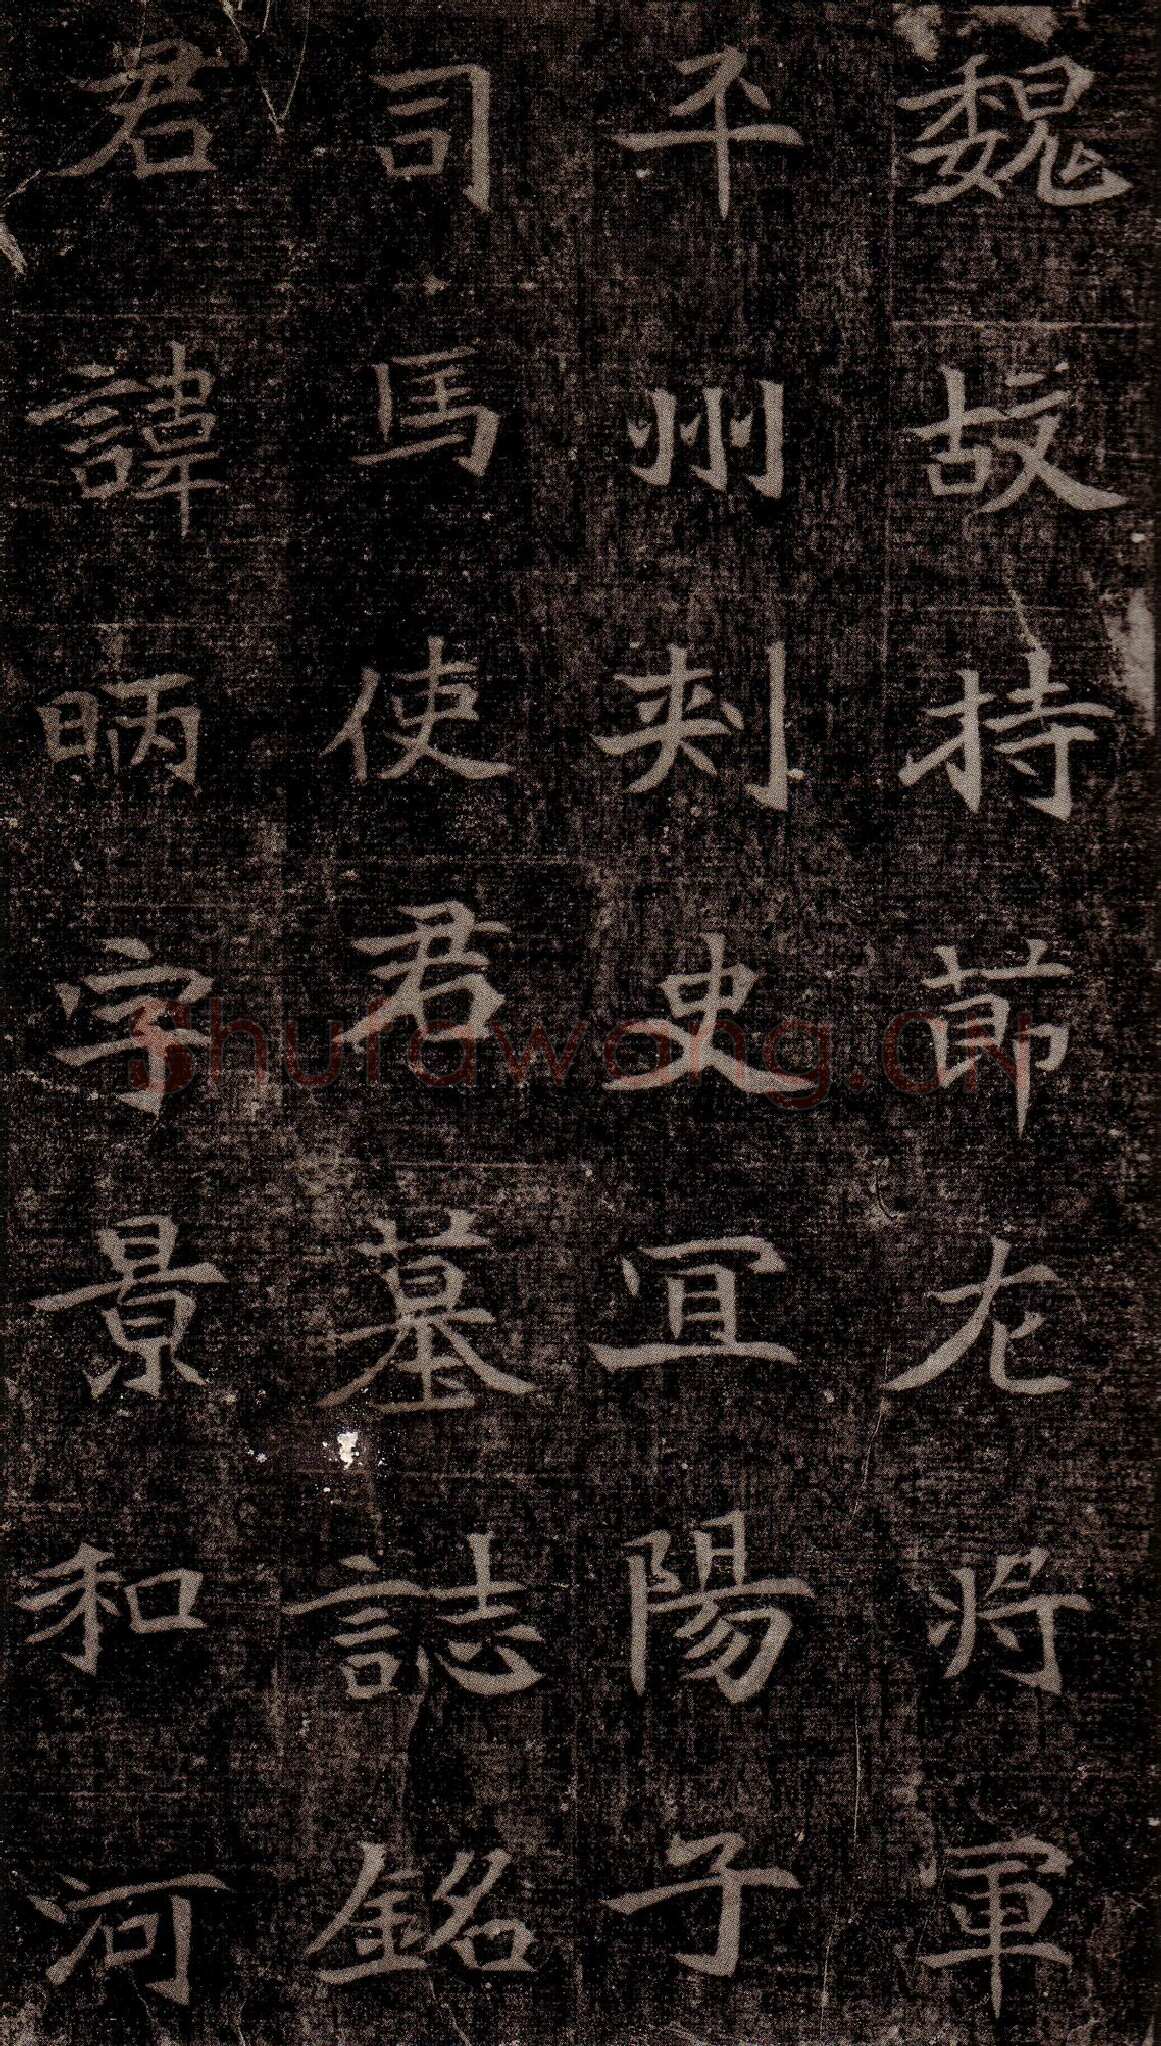 魏故持節左将軍
平州刺史宜陽子
司馬使君墓誌銘
君諱昞字景和河
Shufawang.CN